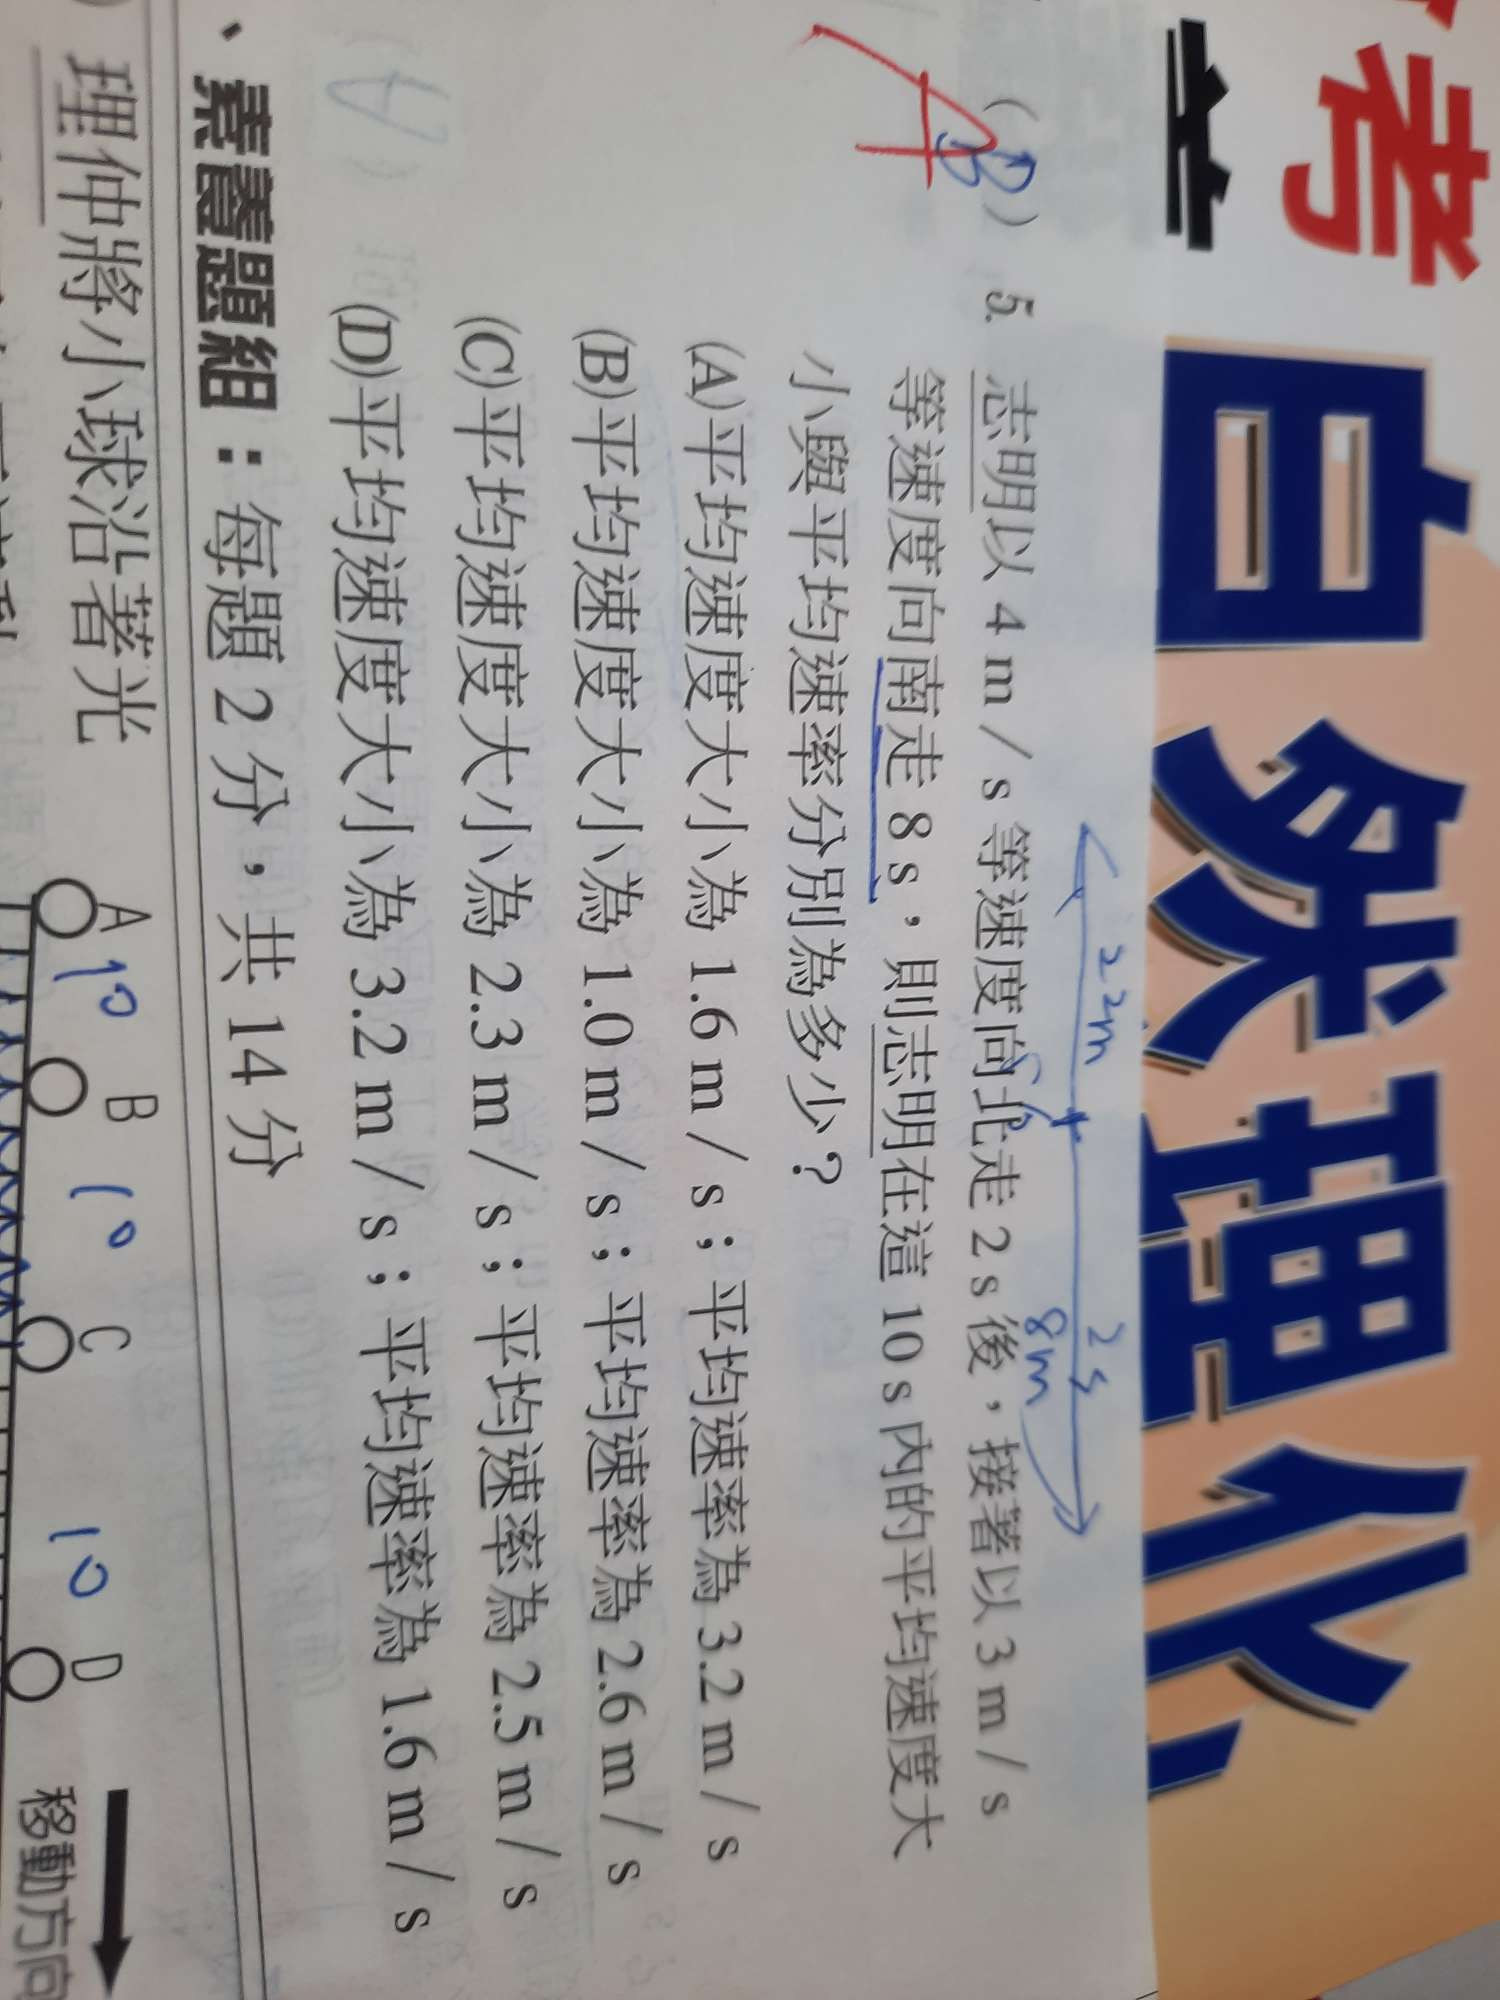 考
自然理化
22m
2s
8m
(B) 5. 志明以 4 m / s 等速度向北走 2 s 後，接著以 3 m / s
A
等速度向南走 8 s，則志明在這 10 s 內的平均速度大
小與平均速率分別為多少？
(A)平均速度大小為 1.6 m / s；平均速率為 3.2 m / s
(B)平均速度大小為 1.0 m / s；平均速率為 2.6 m / s
(C)平均速度大小為 2.3 m / s；平均速率為 2.5 m / s
(D)平均速度大小為 3.2 m / s；平均速率為 1.6 m / s
、素養題組：每題 2 分，共 14 分
理仲將小球沿著光
A B C D
10 10 10
移動方向